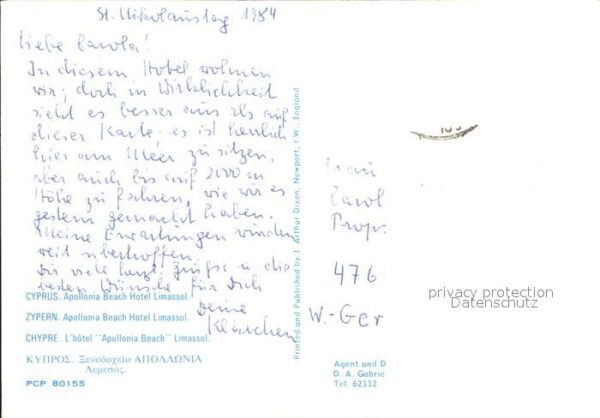 St. Nikolaustag 1984
Liebe Carola!
In diesem Hotel wohnen
wir; doch in Wirklichkeit
sieht es besser aus als auf
dieser Karte. es ist herrlich
hier am Meer zu sitzen,
aber auch bis auf 2000 m
Höhe zu fahren, wie wir es
gestern gemacht haben.
Meine Erwartungen wurden
weit übertroffen.
Dir viele herzl. Grüße u. die
besten Wünsche für Dich
Deine
Klärchen
CYPRUS. Apollonia Beach Hotel Limassol.
ZYPERN. Apollonia Beach Hotel Limassol.
CHYPRE. L'hôtel "Apollonia Beach" Limassol.
ΚΥΠΡΟΣ. Ξενοδοχεῖο ΑΠΟΛΛΩΝΙΑ
Λεμεσός.
PCP 80155
Printed and Published by J. Arthur Dixon, Newport, I.W., England
Frau
Carol
Prop.
476
W.-Ger
privacy protection
Datenschutz
Agent and D
D. A. Gabrie
Tel. 62332